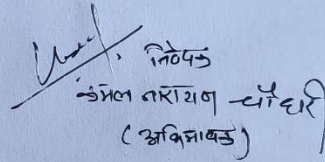 निवेदक
कमल नारायण चौधरी
(अभिभावक)